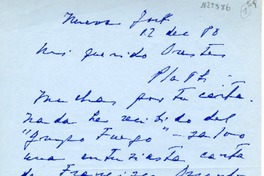 Nueva York
12 dic 83
Mi querido Orestes
Plath:
Muchas por tu carta.
Nada he recibido del
"Grupo Fuego" - salvo
una entusiasta carta
de Francisco